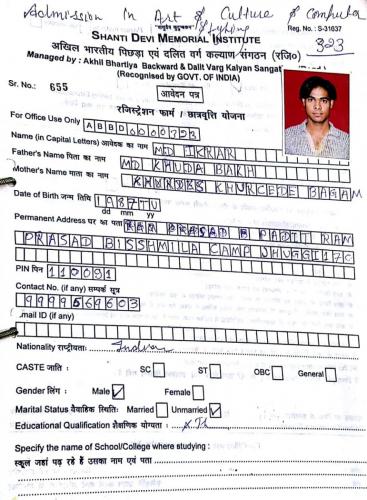 Admission in Art & Culture & Computer
Typing
SHANTI DEVI MEMORIAL INSTITUTE
Reg. No. : S-31037
323
अखिल भारतीय पिछड़ा एवं दलित वर्ग कल्याण संगठन (रजि०)
Managed by : Akhil Bhartiya Backward & Dalit Varg Kalyan Sangat
(Recognised by GOVT. OF INDIA)
Sr. No.: 655
आवेदन पत्र
रजिस्ट्रेशन फार्म / छात्रवृत्ति योजना
For Office Use Only ABBD0000753
Name (in Capital Letters) आवेदक का नाम MD IKRAR
Father's Name पिता का नाम MD KHUDA BAKH
Mother's Name माता का नाम KHURCEDE BAGAM
Date of Birth जन्म तिथि 1987
dd mm yy
Permanent Address घर का पता PADIT RAM
PRASAD BISSHMILA CAMP JHUGGI 170
PIN पिन 110091
Contact No. (if any) सम्पर्क सूत्र
9999569603
mail ID (if any)
Nationality राष्ट्रीयताः Indian
CASTE जाति : SC ST OBC General
Gender लिंग : Male Female
Marital Status वैवाहिक स्थितिः Married Unmarried
Educational Qualification शैक्षणिक योग्यता :
Specify the name of School/College where studying :
स्कूल जहां पढ़ रहे हैं उसका नाम एवं पता